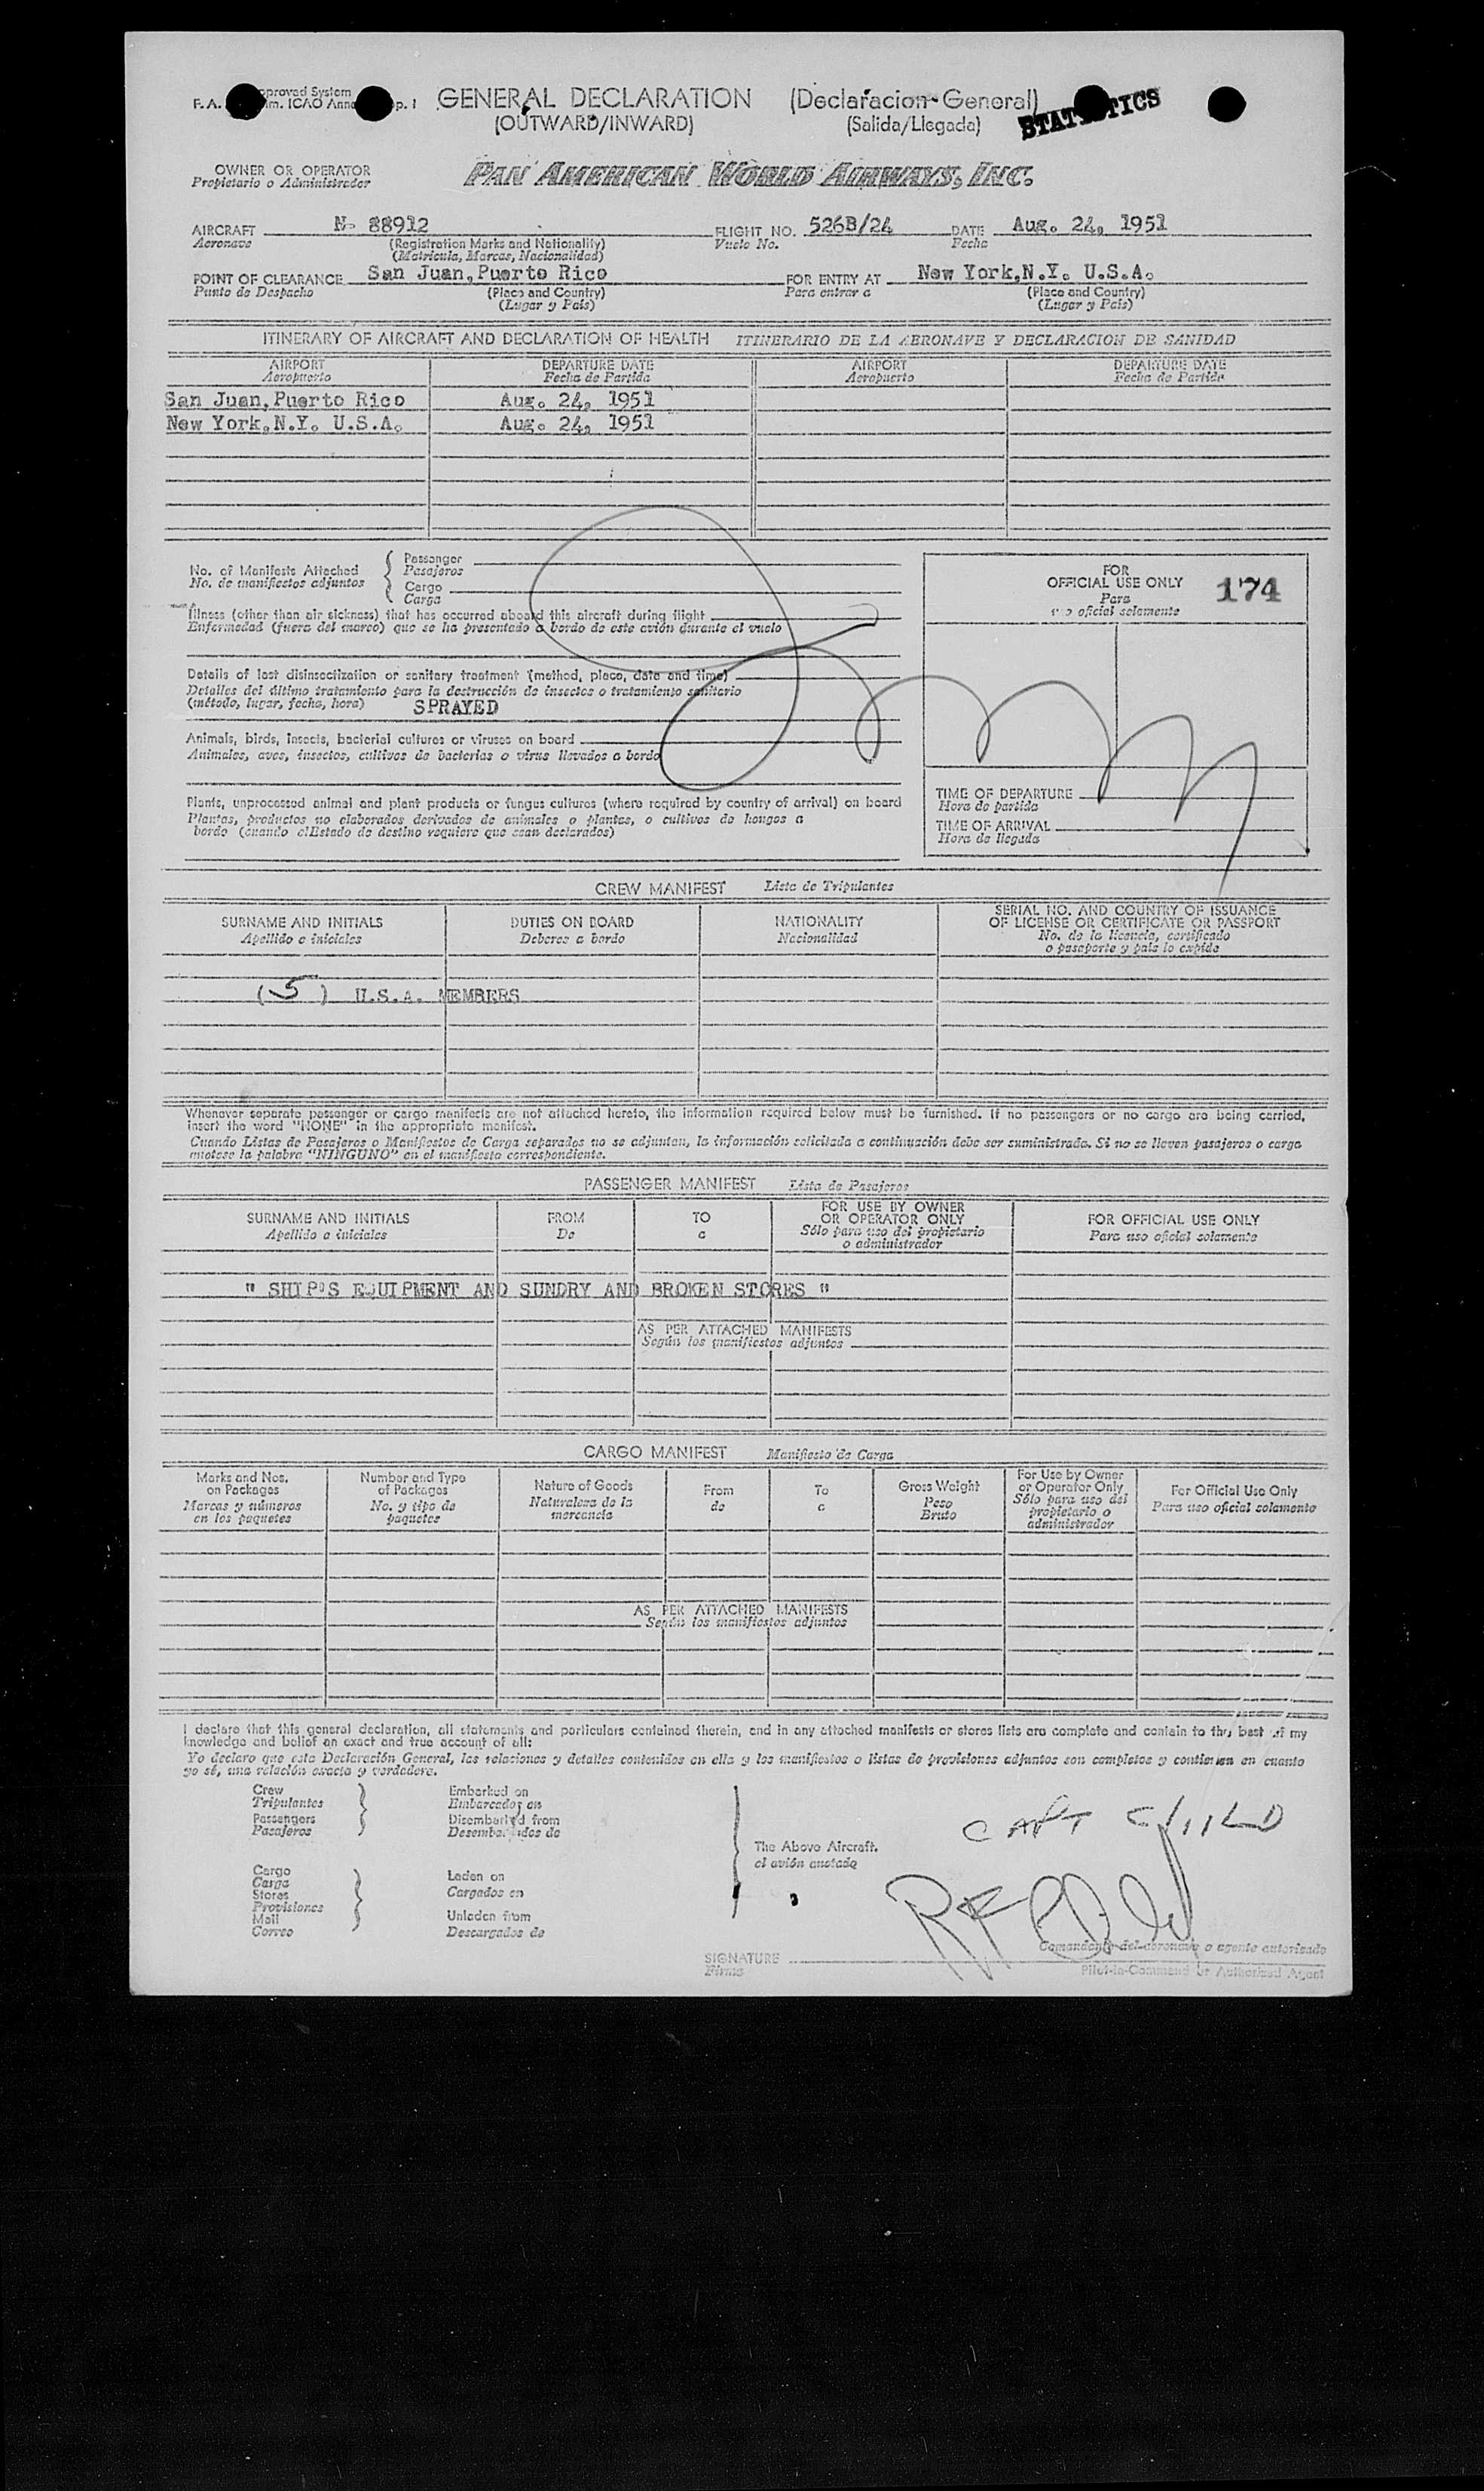 proved System
F.A. m. ICAO Anne p. 1
GENERAL DECLARATION (Declaracion General)
(OUTWARD/INWARD) (Salida/Llegada)
STATISTICS
OWNER OR OPERATOR
Propietario o Administrador
PAN AMERICAN WORLD AIRWAYS, INC.
AIRCRAFT N- 88912 FLIGHT NO. 526B/24 DATE Aug. 24, 1951
Aeronave (Registration Marks and Nationality) Vuelo No. Fecha
(Matricula, Marcas, Nacionalidad)
POINT OF CLEARANCE San Juan, Puerto Rico FOR ENTRY AT New York, N.Y. U.S.A.
Punto de Despacho (Place and Country) Para entrar a (Place and Country)
(Lugar y Pais) (Lugar y Pais)
ITINERARY OF AIRCRAFT AND DECLARATION OF HEALTH ITINERARIO DE LA AERONAVE Y DECLARACION DE SANIDAD
AIRPORT DEPARTURE DATE AIRPORT DEPARTURE DATE
Aeropuerto Fecha de Partida Aeropuerto Fecha de Partida
San Juan, Puerto Rico Aug. 24, 1951
New York, N.Y. U.S.A. Aug. 24, 1951
No. of Manifests Attached
No. de manifiestos adjuntos
Passenger
Pasajeros
Cargo
Carga
FOR
OFFICIAL USE ONLY 174
Para
uso oficial solamente
Illness (other than air sickness) that has occurred aboard this aircraft during flight
Enfermedad (fuera del mareo) que se ha presentado a bordo de este avión durante el vuelo
Details of last disinsectization or sanitary treatment (method, place, date and time)
Detalles del último tratamiento para la destrucción de insectos o tratamiento sanitario
(método, lugar, fecha, hora) SPRAYED
Animals, birds, insects, bacterial cultures or viruses on board
Animales, aves, insectos, cultivos de bacterias o virus llevados a bordo
Plants, unprocessed animal and plant products or fungus cultures (where required by country of arrival) on board
Plantas, productos no elaborados derivados de animales o plantas, o cultivos de hongos a
bordo (cuando el Estado de destino requiere que sean declarados)
TIME OF DEPARTURE
Hora de partida
TIME OF ARRIVAL
Hora de llegada
CREW MANIFEST Lista de Tripulantes
SURNAME AND INITIALS DUTIES ON BOARD NATIONALITY SERIAL NO. AND COUNTRY OF ISSUANCE
OF LICENSE OR CERTIFICATE OR PASSPORT
Apellido e iniciales Deberes a bordo Nacionalidad No. de la licencia, certificado
o pasaporte y pais lo expide
(5) U.S.A. MEMBERS
Whenever separate passenger or cargo manifests are not attached hereto, the information required below must be furnished. If no passengers or no cargo are being carried,
insert the word "NONE" in the appropriate manifest.
Cuando Listas de Pasajeros o Manifiestos de Carga separados no se adjuntan, la información solicitada a continuación debe ser suministrada. Si no se llevan pasajeros o carga
anotese la palabra "NINGUNO" en el manifiesto correspondiente.
PASSENGER MANIFEST Lista de Pasajeros
SURNAME AND INITIALS FROM TO FOR USE BY OWNER
OR OPERATOR ONLY FOR OFFICIAL USE ONLY
Apellido e iniciales De a Sólo para uso del propietario
o administrador Para uso oficial solamente
" SHIP'S EQUIPMENT AND SUNDRY AND BROKEN STORES "
AS PER ATTACHED MANIFESTS
Según los manifiestos adjuntos
CARGO MANIFEST Manifiesto de Carga
Marks and Nos.
on Packages
Marcas y números
en los paquetes
Number and Type
of Packages
No. y tipo de
paquetes
Nature of Goods
Naturaleza de la
mercancia
From
de
To
a
Gross Weight
Peso
Bruto
For Use by Owner
or Operator Only
Sólo para uso del
propietario o
administrador
For Official Use Only
Para uso oficial solamente
AS PER ATTACHED MANIFESTS
Según los manifiestos adjuntos
I declare that this general declaration, all statements and particulars contained therein, and in any attached manifests or stores lists are complete and contain to the best of my
knowledge and belief an exact and true account of all:
Yo declaro que esta Declaración General, las relaciones y detalles contenidos en ella y los manifiestos o listas de provisiones adjuntos son completos y contienen en cuanto
yo sé, una relación exacta y verdadera.
Crew
Tripulantes
Passengers
Pasajeros
Embarked on
Embarcados en
Disembarked from
Desembarcados de
Cargo
Carga
Stores
Provisiones
Mail
Correo
Laden on
Cargados en
Unladen from
Descargados de
The Above Aircraft.
el avión anotado
CAPT CHILD
SIGNATURE
Firma
Comandante del aeronave o agente autorizado
Pilot-in-Command or Authorized Agent